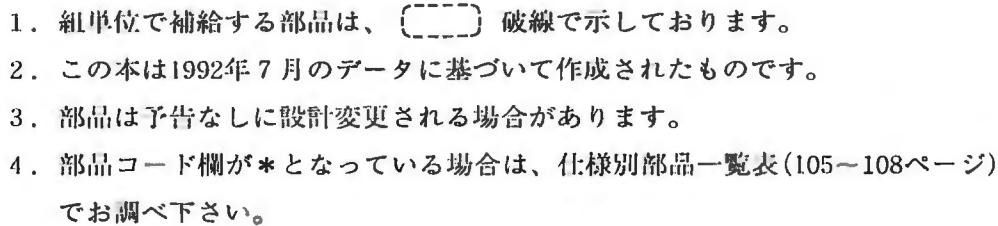 1．組単位で補給する部品は、 破線で示しております。
2．この本は1992年7月のデータに基づいて作成されたものです。
3．部品は予告なしに設計変更される場合があります。
4．部品コード欄が＊となっている場合は、仕様別部品一覧表(105～108ページ)
でお調べ下さい。